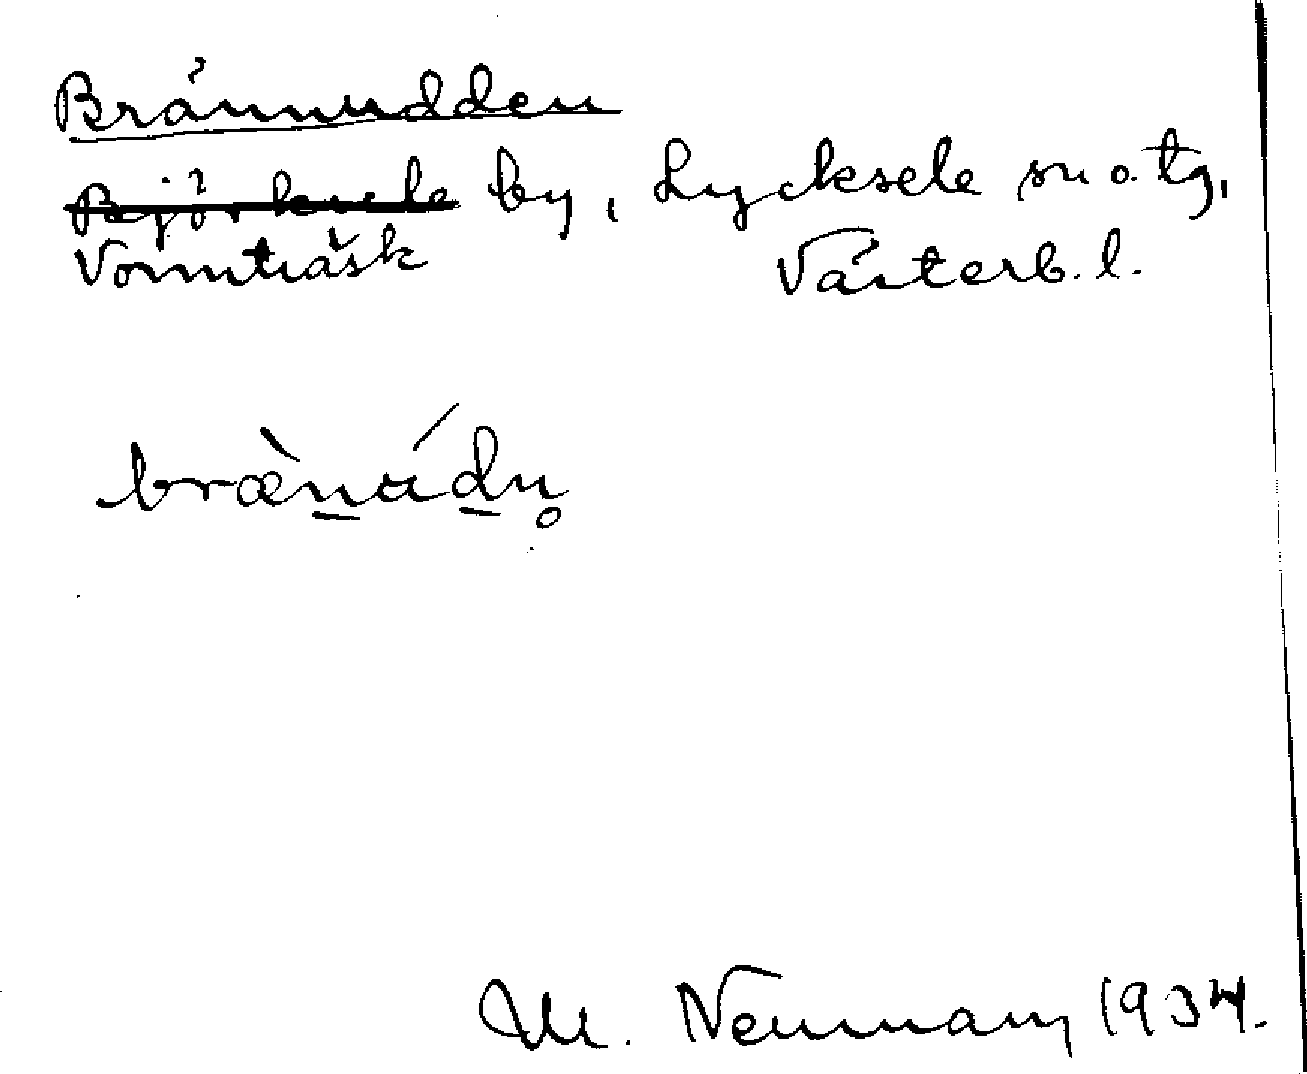 Brännudden
Björksele by, Lycksele sn o. tg,
Vormträsk Västerb. l.
bræ̀nu̇́dn̥
M. Neuman 1934.